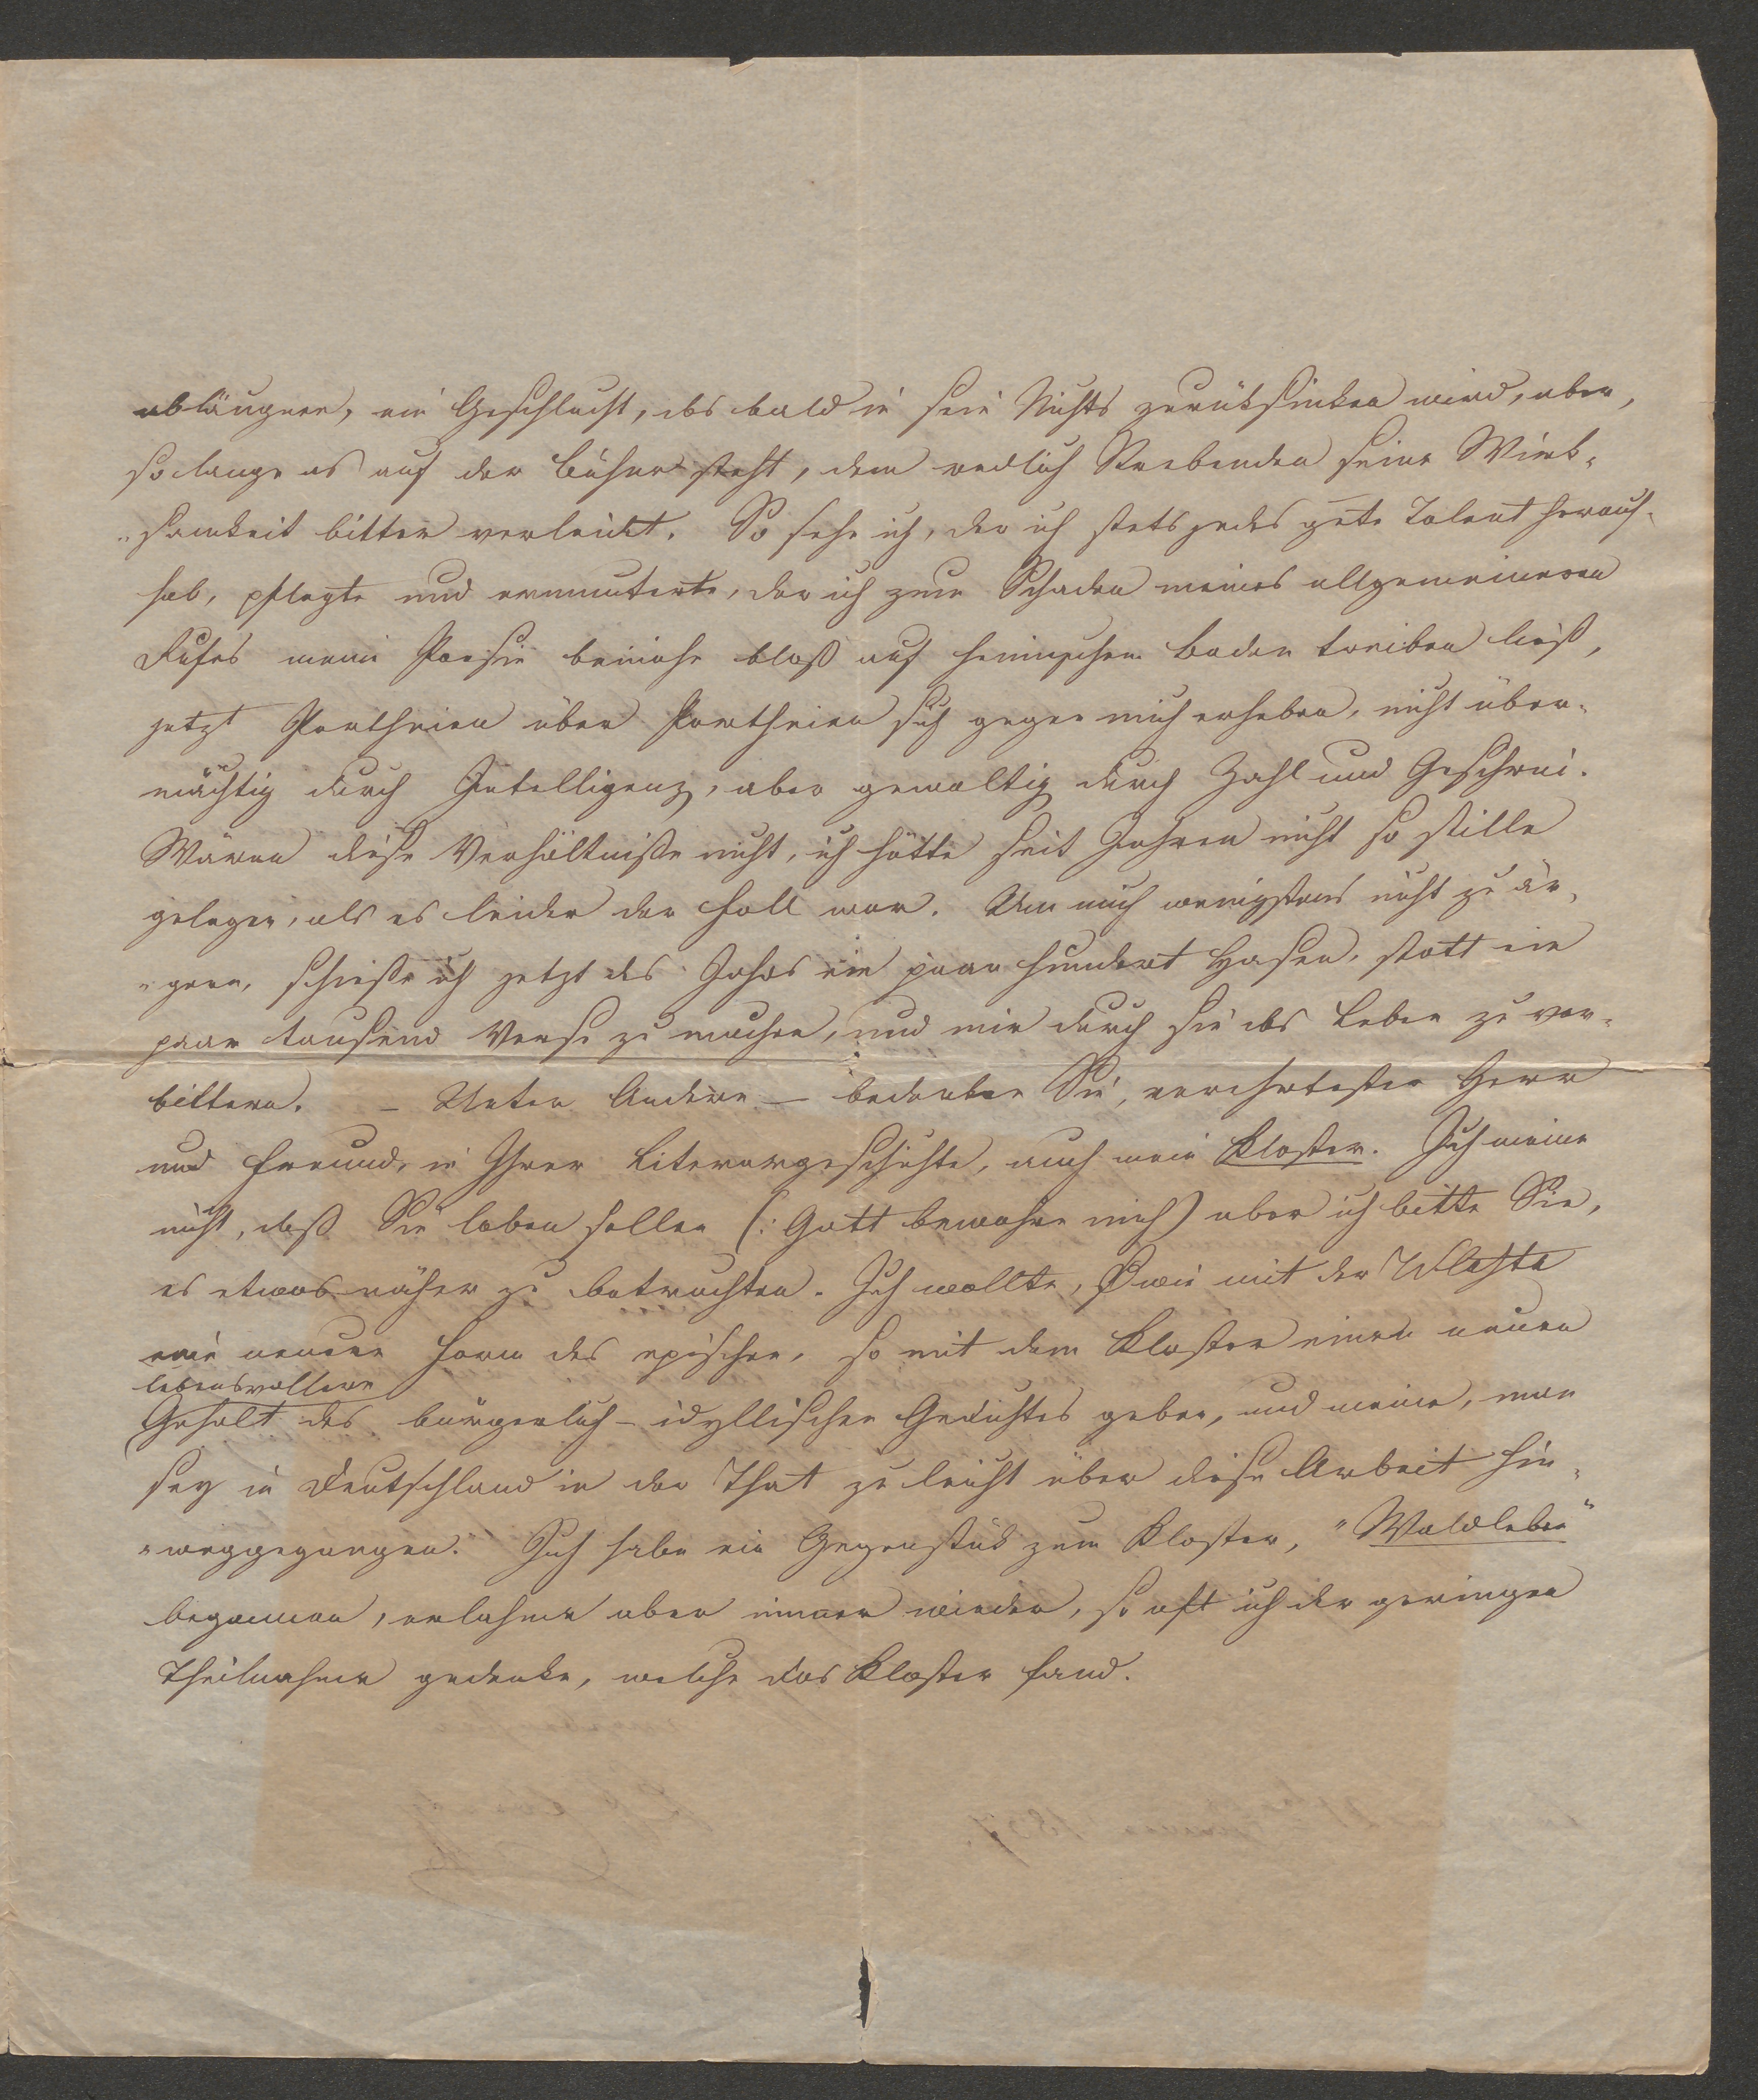 abläugnen, ein Geschlecht, das bald in sein Nichts zurüksinken wird, aber,
so lange es auf der Bühne steht, dem redlich Strebenden seine Wirk-
„samkeit bitter verleidet. So sehe ich, der ich stets jedes gute Talent heraus-
hob, pflegte und ermunterte, der ich zum Schaden meines allgemeineren
Rufes mein Poesie beinahe bloß auf heimischem Boden treiben ließ,
jetzt Partheien über Partheien sich gegen mich erheben, nicht über-
mächtig durch Intelligenz, aber gewaltig durch Zahl und Geschrei.
Wären diese Verhältniße nicht, ich hätte seit Jahren nicht so stille
gelegen, als es leider der Fall war. Um mich wenigstens nicht zu är-
„gern, schieße ich jetzt des Jahrs ein paar hundert Hasen, statt ein
paar tausend Verse zu machen, und mir durch sie das Leben zu ver-
bittern. – Unter Andern – bedenken Sie, verehrtester Herr
und Freund, in Ihrer Literargeschichte, auch mein Kloster. Ich meine
nicht, daß Sie loben sollen (: Gott bewahre mich) aber ich bitte Sie,
es etwas näher zu betrachten. Ich wollte, wie mit der Wlasta
eine neuere Form des epischen, so mit dem Kloster einen neuen
lebensvollern
Gehalt des bürgerlich-idyllischen Gedichtes geben, und meine, man
sey in Deutschland in der That zu leicht über diese Arbeit hin-
„weggegangen. Ich habe ein Gegenstük zum Kloster, „Waldleben“
begonnen, erlahme aber immer wieder, so oft ich der geringen
Theilnahme gedenke, welche das Kloster fand.